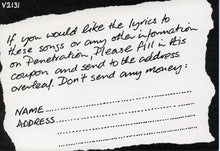 V2131
If you would like the lyrics to
these songs or any other information
on Penetration, Please fill in this
coupon and send to the address
overleaf. Don't send any money:
NAME..............................
ADDRESS..............................
..............................
..............................